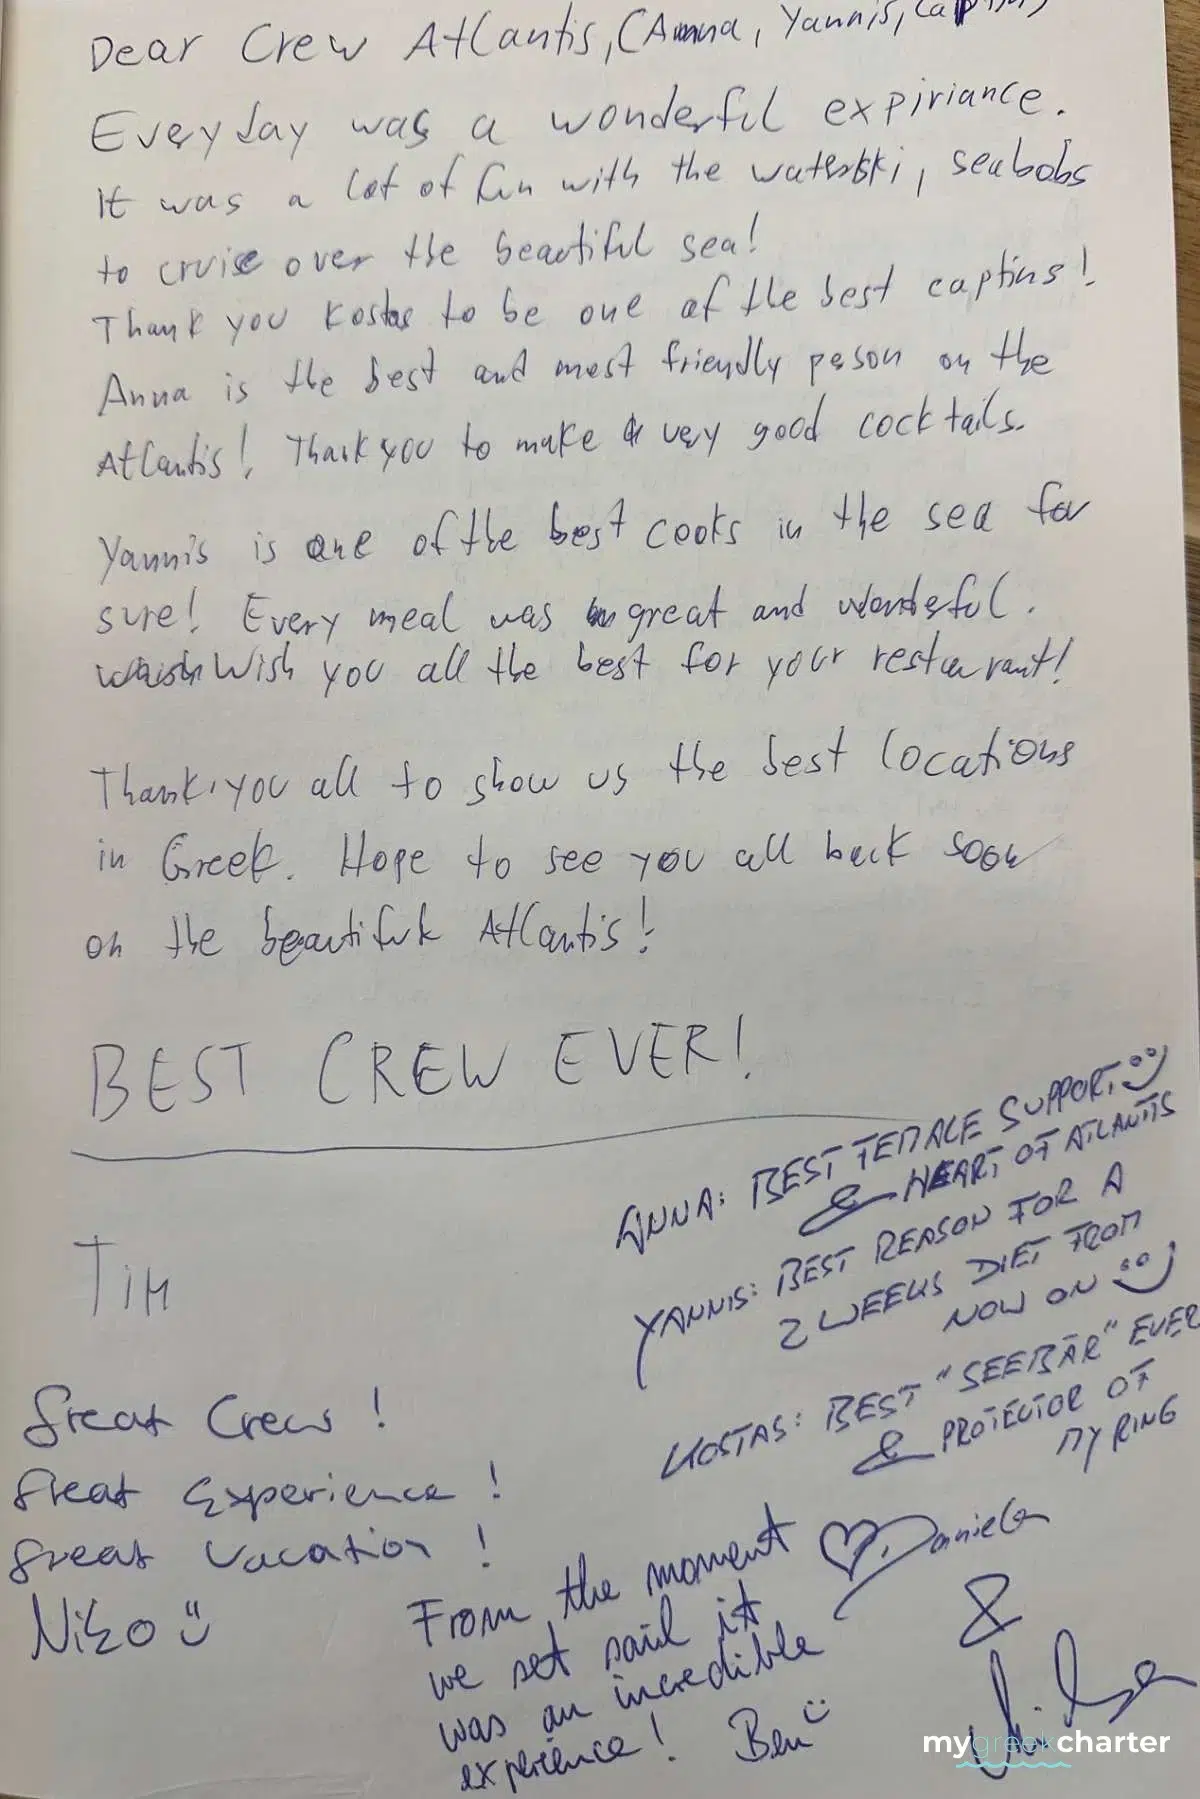 Dear Crew Atlantis, (Anna, Yannis,
Everyday was a wonderful expiriance.
It was a lot of fun with the waterski, seabobs
to cruise over the beautiful sea!
Thank you Kostas to be one of the best captins!
Anna is the best and most friendly peson on the
Atlantis! Thank you to make very good cocktails.
Yannis is one of the best cooks in the sea for
sure! Every meal was great and wonderful.
Wish you all the best for your restaurant!
Thank you all to show us the best locations
in Greek. Hope to see you all back soon
on the beautiful Atlantis!
BEST CREW EVER!
TIM
ANNA: BEST FEMALE SUPPORT
& HEART OF ATLANTIS
YANNIS: BEST REASON FOR A
2 WEEKS DIET FROM
NOW ON
KOSTAS: BEST "SEEBÄR" EVER
& PROTECTOR OF
MY RING
Daniela
&
Great Crew!
Great Experience!
Great Vacation!
Niko
From the moment
we set sail it
was an incredible
experience! Ben
mygreekcharter